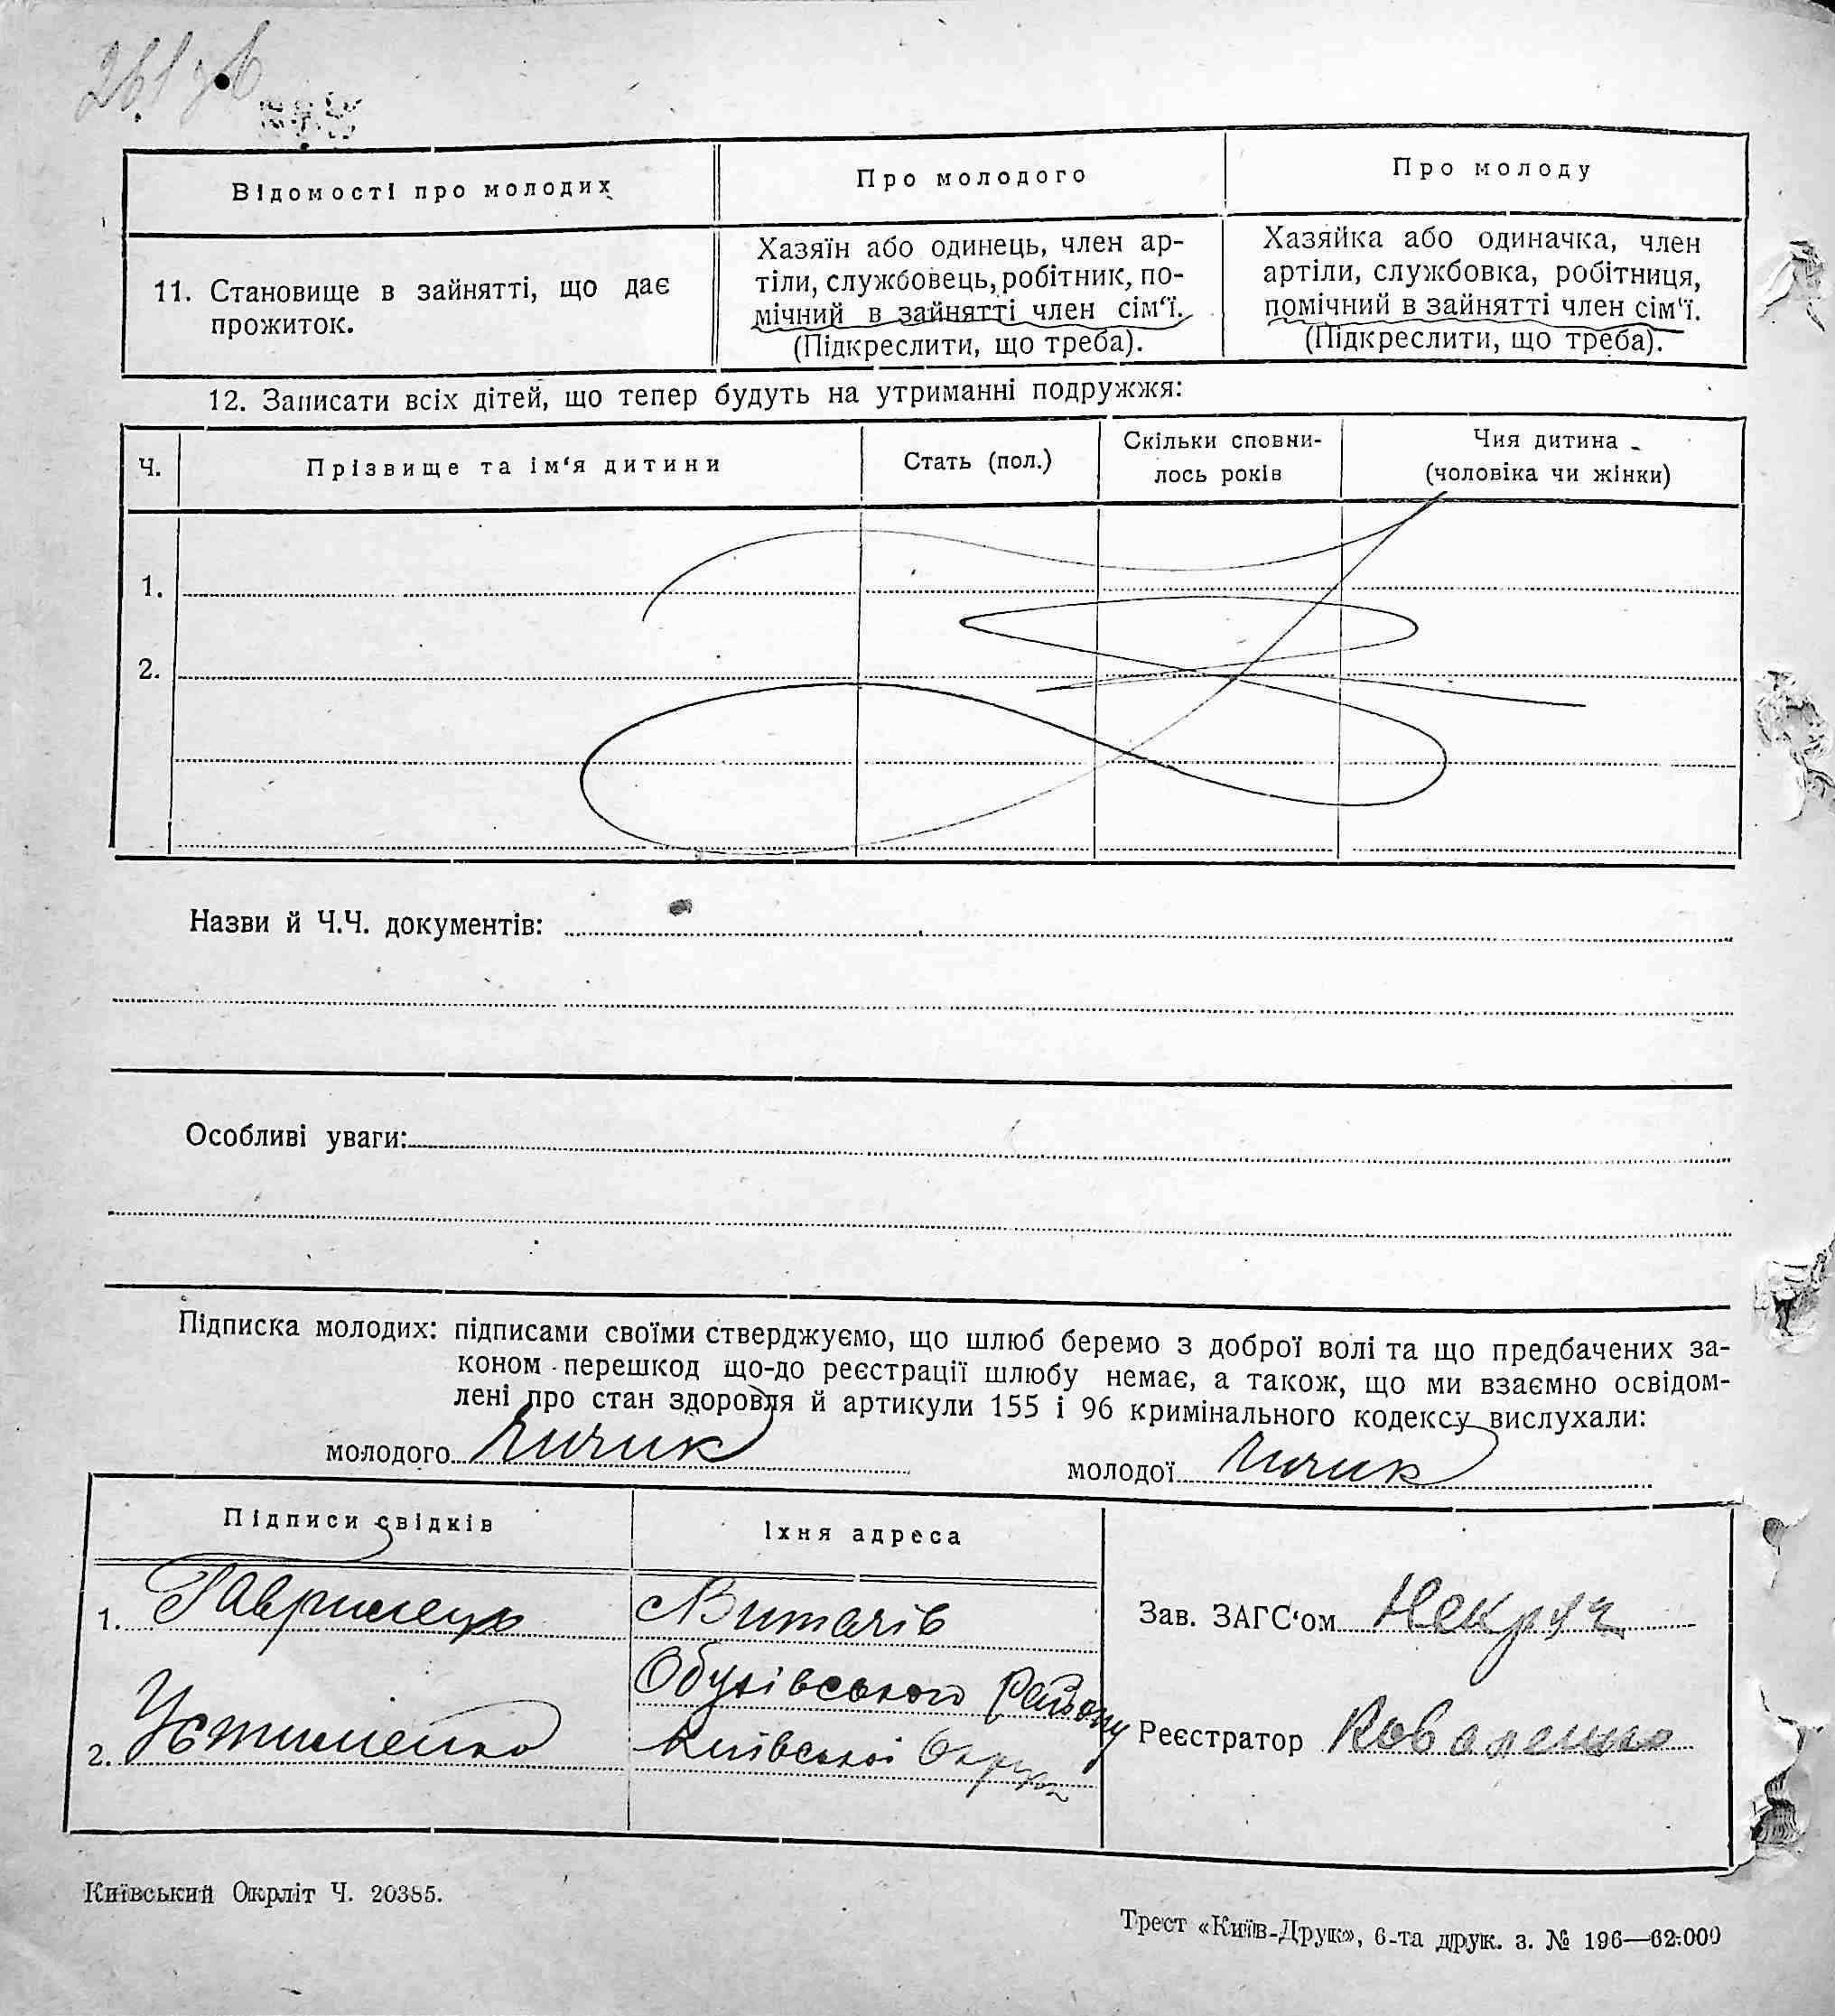 Відомості про молодих
Про молодого
Про молоду
11. Становище в зайнятті, що дає
прожиток.
Хазяїн або одинець, член ар-
тіли, службовець, робітник, по-
мічний в зайнятті член сім‘ї.
(Підкреслити, що треба).
Хазяйка або одиначка, член
артіли, службовка, робітниця,
помічний в зайнятті член сім‘ї.
(Підкреслити, що треба).
12. Записати всіх дітей, що тепер будуть на утриманні подружжя:
Ч.
Прізвище та ім‘я дитини
Стать (пол.)
Скільки сповни-
лось років
Чия дитина
(чоловіка чи жінки)
1.
2.
Назви й Ч.Ч. документів:
Особливі уваги:
Підписка молодих: підписами своїми стверджуємо, що шлюб беремо з доброї волі та що предбачених за-
коном перешкод що-до реєстрації шлюбу немає, а також, що ми взаємно освідом-
лені про стан здоровля й артикули 155 і 96 кримінального кодексу вислухали:
молодого
молодої
Підписи свідків
Їхня адреса
1. Гаврилець
Витачів
Обухівського Району
2. Устименко
Київської Округи
Зав. ЗАГС‘ом Некряч
Реєстратор Коваленко
Київський Окрліт Ч. 20385.
Трест «Київ-Друк», 6-та друк. з. № 196—62.000